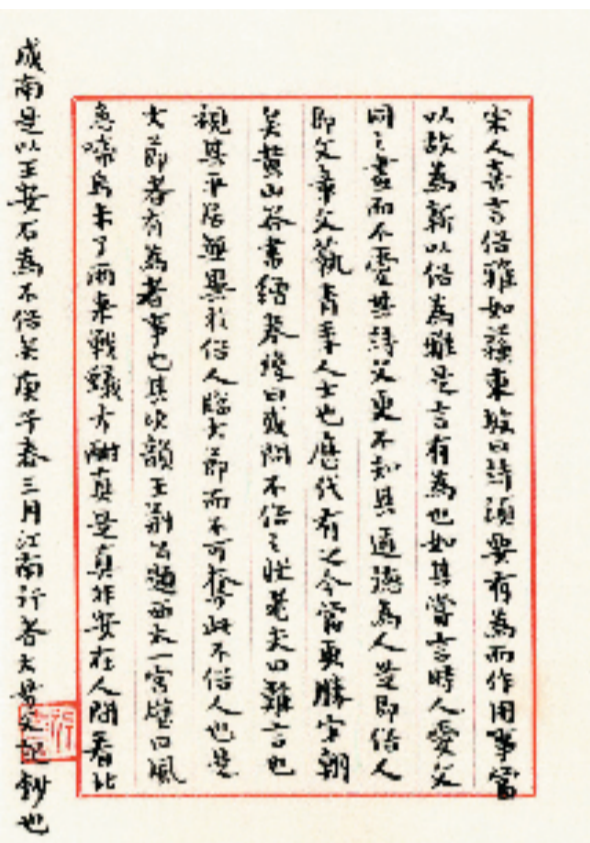 宋人喜言俗雅如蘓東坡曰詩須要有為而作用事當
以故為新以俗為雅是言有為也如其嘗言時人愛文
同之畫而不愛其詩文更不知其道德為人是即俗人
即文章文藝青年人士也歷代有之今當更勝宋朝
矣黄山谷書繒卷後曰或問不俗之狀老夫曰難言也
視其平居無異於俗人臨大節而不可奪此不俗人也是
大節者有為者事也其次韻王荆公題西太一宫壁曰風
急啼烏未了雨來戰蟻方酣真是真非安在人間看北
成南是以王安石為不俗矣庚子春三月江南行者大 鈔也